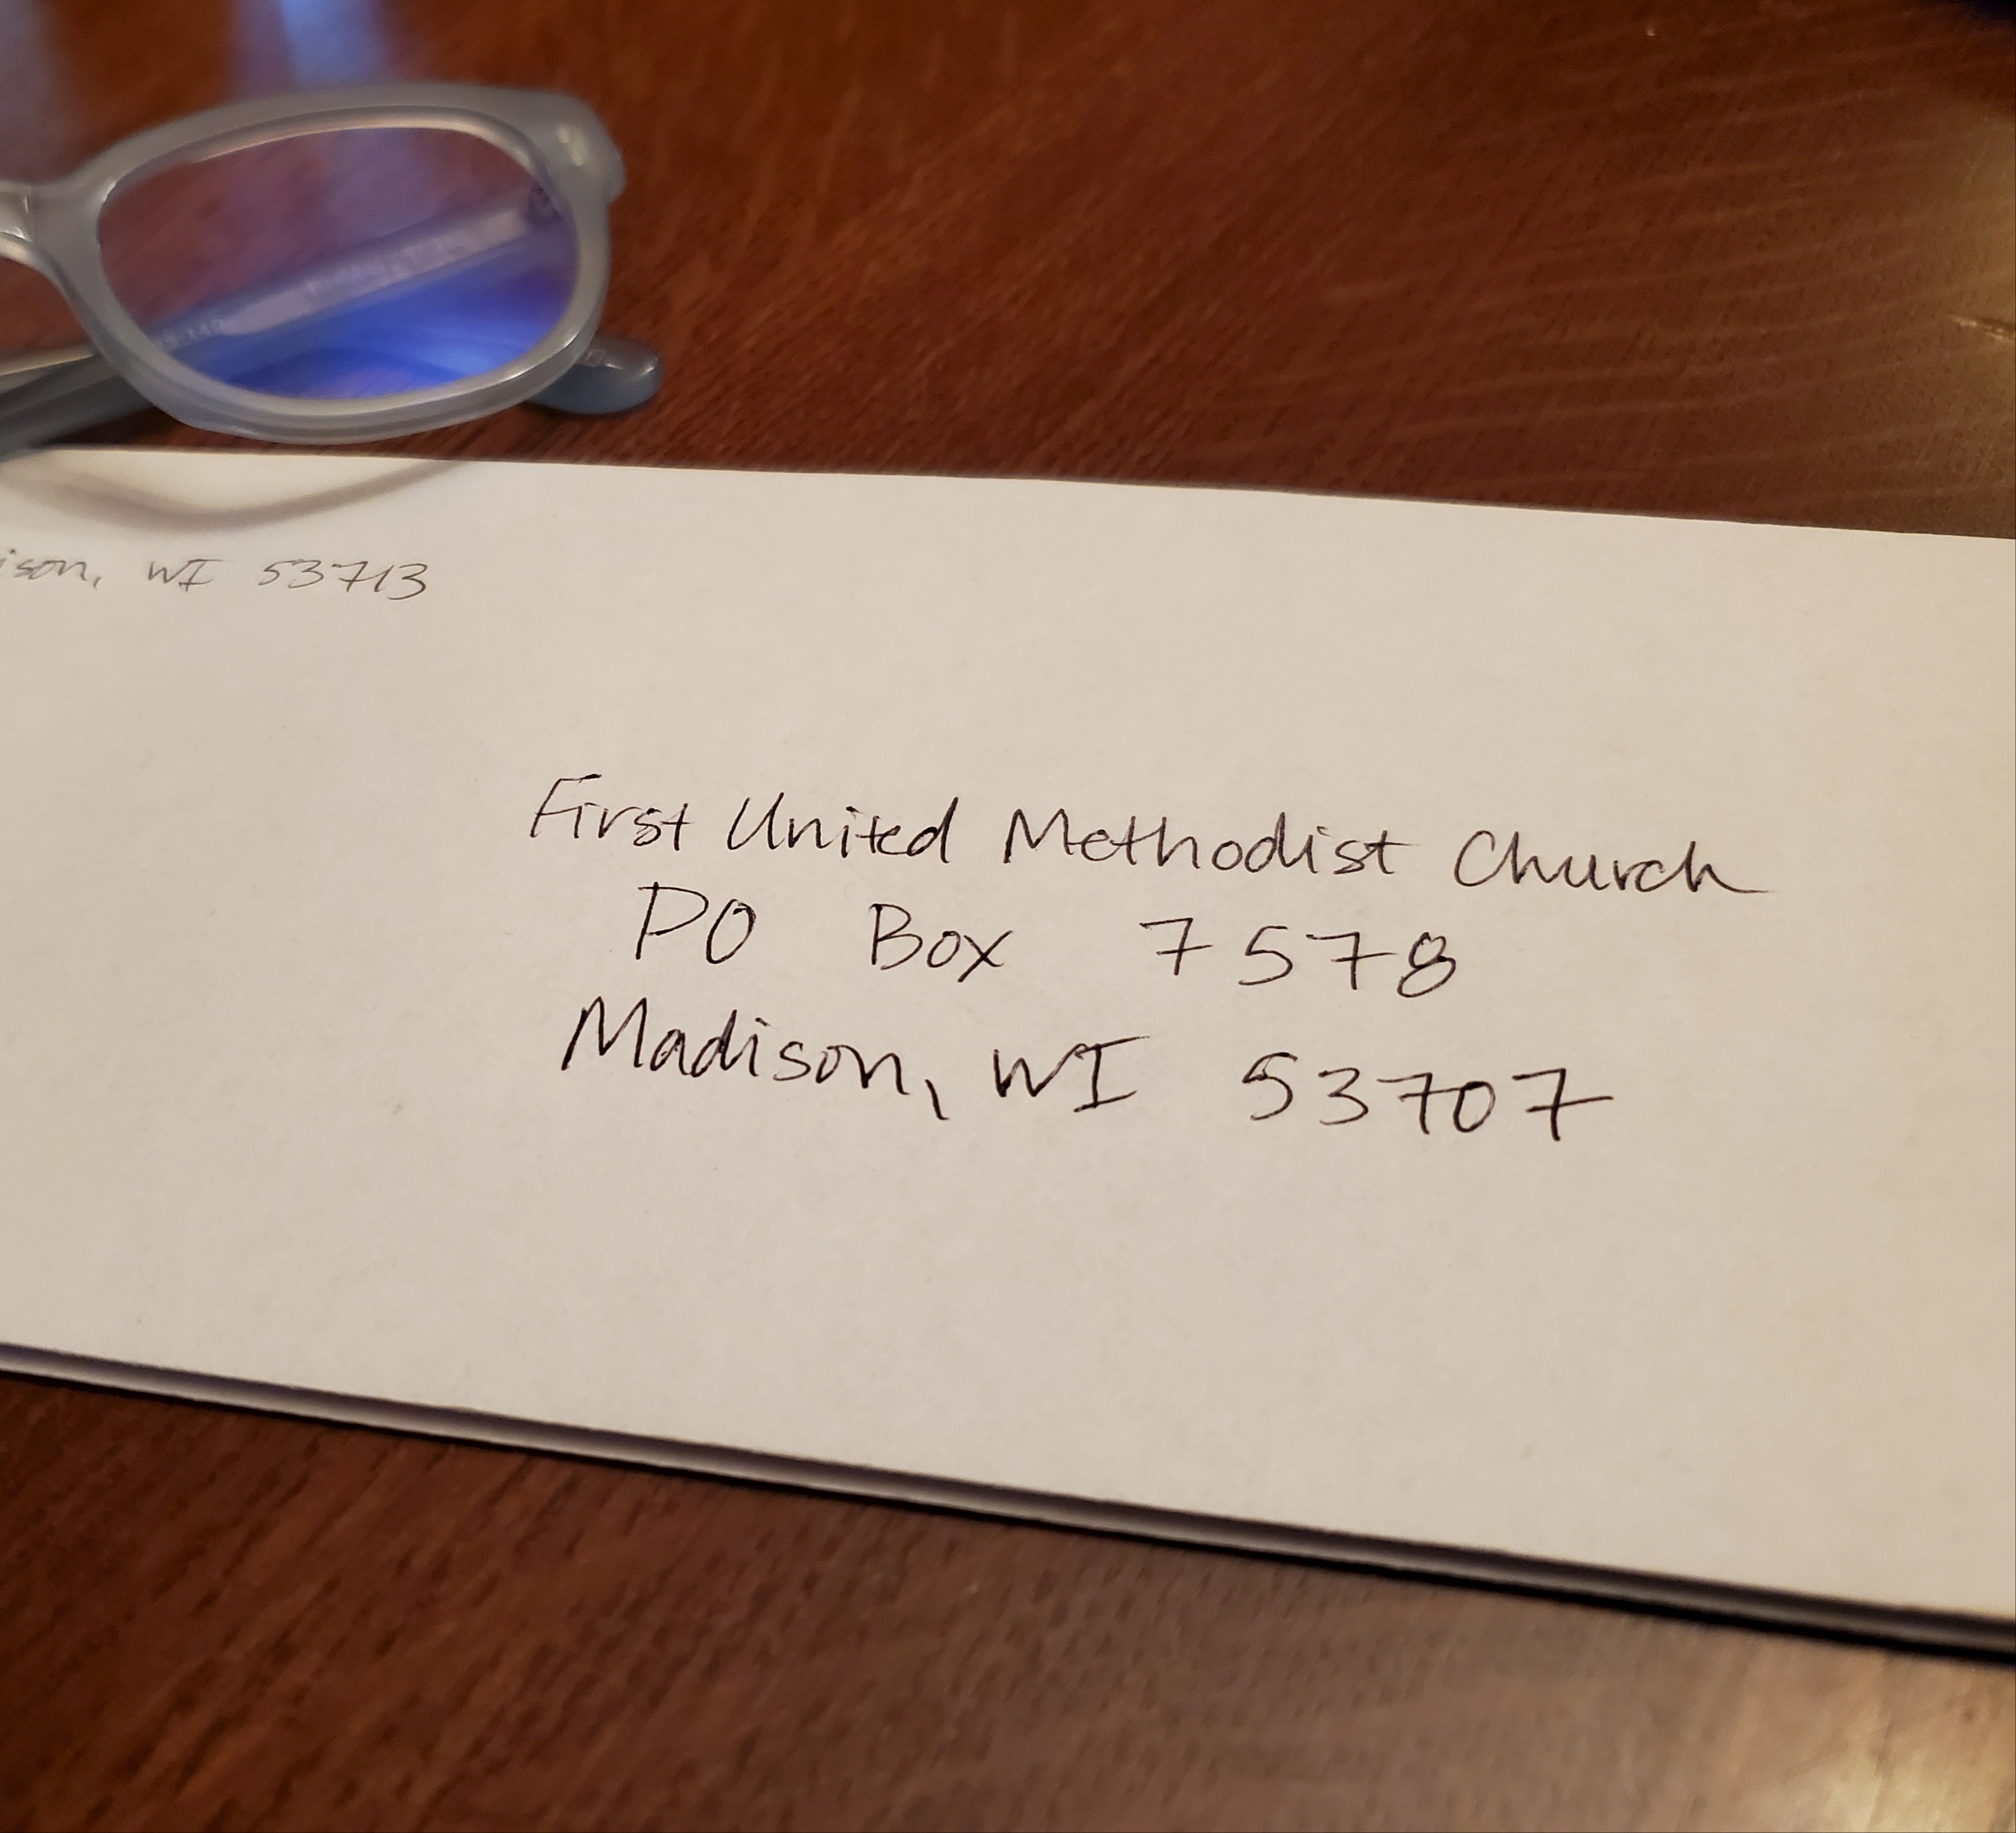 ison, WI 53713
First United Methodist Church
PO Box 7578
Madison, WI 53707